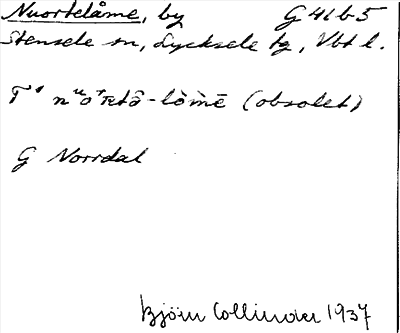 Nuortelåme, by G 41 b 5
Stensele sn, Lycksele tg, Vbt l.
T' nᵘo'rtō-lòmē (obsolet)
G Norrdal
Björn Collinder 1937